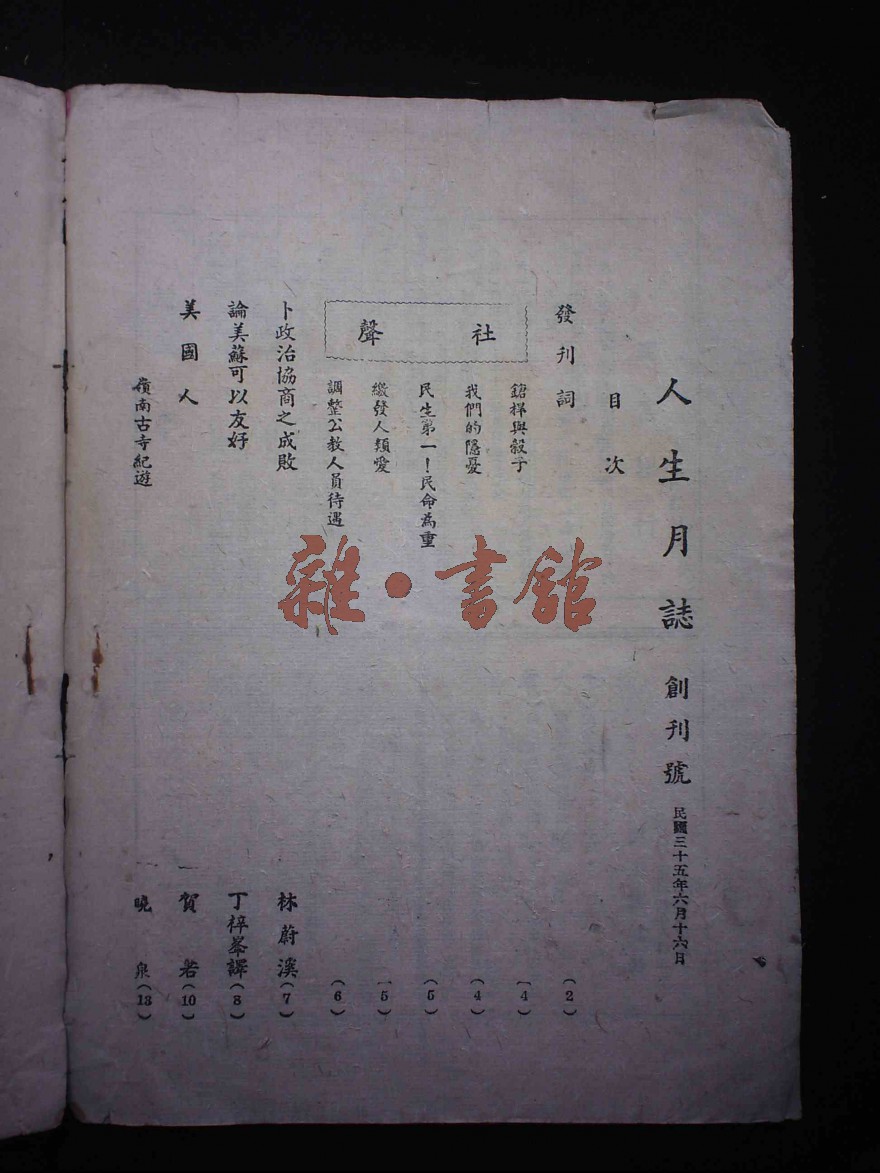 人生月誌 創刊號 民國三十五年六月十六日
目次
發刊詞 (2)
社聲
與穀子 (4)
我們的隱憂 (4)
民生第一！民命為重 (5)
發人類愛 (5)
調整公教人員待遇 (6)
卜政治協商之成敗 林蔚溪 (7)
論美蘇可以友好 丁梓峯譯 (8)
美國人 賀若 (10)
嶺南古寺紀遊 曉泉 (13)
雜·書館